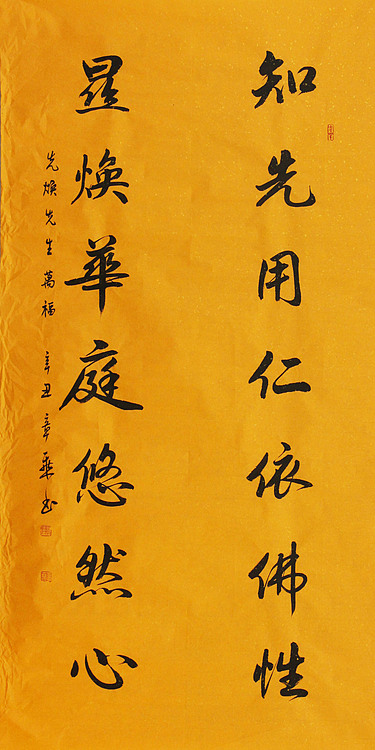 知先用仁依佛性
晟焕華庭悠然心
先焕先生萬福 辛丑 章華书